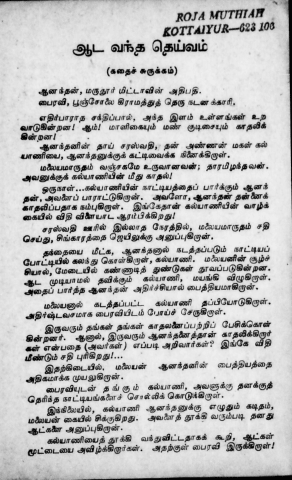 ROJA MUTHIAH
KOTTAIYUR—623 106
ஆட வந்த தெய்வம்
(கதைச் சுருக்கம்)
ஆனந்தன், மருதூர் மிட்டாவின் அதிபதி.
பைரவி, பூஞ்சோலை கிராமத்துத் தெரு நடனக்காரி,
எதிர்பாராத சந்திப்பால், அந்த இளம் உள்ளங்கள் உற
வாடுகின்றன! ஆம்! மாளிகையும் மண் குடிசையும் காதலிக்
கின்றன!
ஆனந்தனின் தாய் சரஸ்வதி, தன் அண்ணன் மகள் கல்
யாணியை, ஆனந்தனுக்குக் கட்டிவைக்க நினைக்கிறாள்.
மலையமாருதம் வஞ்சகமே உருவானவன்; தாரமிழந்தவன்.
அவனுக்குக் கல்யாணியின் மீது காதல்!
ஒருநாள்...கல்யாணியின் நாட்டியத்தைப் பார்க்கும் ஆனந்
தன், அவளைப் பாராட்டுகிறான். அவளோ, ஆனந்தன் தன்னைக்
காதலிப்பதாக நம்புகிறாள். இங்கேதான் கல்யாணியின் வாழ்க்
கையில் விதி விளையாட ஆரம்பிக்கிறது!
சரஸ்வதி ஊரில் இல்லாத நேரத்தில், மலையமாருதம் சதி
செய்து, சிங்காரத்தை ஜெயிலுக்கு அனுப்புகிறான்.
தந்தையை மீட்க, ஆனந்தனால் நடத்தப்படும் நாட்டியப்
போட்டியில் கலந்து கொள்கிறாள், கல்யாணி. மலையனின் சூழ்ச்
சியால், மேடையில் கண்ணாடித் துண்டுகள் தூவப்படுகின்றன.
ஆட முடியாமல் தவிக்கும் கல்யாணி, மயங்கி விழுகிறாள்.
அதைப் பார்த்த ஆனந்தன் அதிர்ச்சியால் பைத்தியமாகிறான்.
மலையனால் கடத்தப்பட்ட கல்யாணி தப்பியோடுகிறாள்.
அதிர்ஷ்டவசமாக பைரவியிடம் போய்ச் சேருகிறாள்.
இருவரும் தங்கள் தங்கள் காதலனைப்பற்றிப் பேசிக்கொள்
கின்றனர். ஆனால், இருவரும் ஆனந்தனைத்தான் காதலிக்கிறார்
கள் என்பதை (அவர்கள்) எப்படி அறிவார்கள்? இங்கே விதி
மீண்டும் சதி புரிகிறது!...
இதற்கிடையில், மலையன் ஆனந்தனின் பைத்தியத்தை
அதிகமாக்க முயலுகிறான்.
பைரவியுடன் தங்கும் கல்யாணி, அவளுக்கு தனக்குத்
தெரிந்த நாட்டியங்களைச் சொல்லிக் கொடுக்கிறாள்.
இந்நிலையில், கல்யாணி ஆனந்தனுக்கு எழுதும் கடிதம்,
மலையன் கையில் சிக்குகிறது. அவளைத் தூக்கி வரும்படி தனது
ஆட்களை அனுப்புகிறான்.
கல்யாணியைத் தூக்கி வந்துவிட்டதாகக் கூறி, ஆட்கள்
மூட்டையை அவிழ்க்கிறார்கள். அதற்குள் பைரவி இருக்கிறாள்!